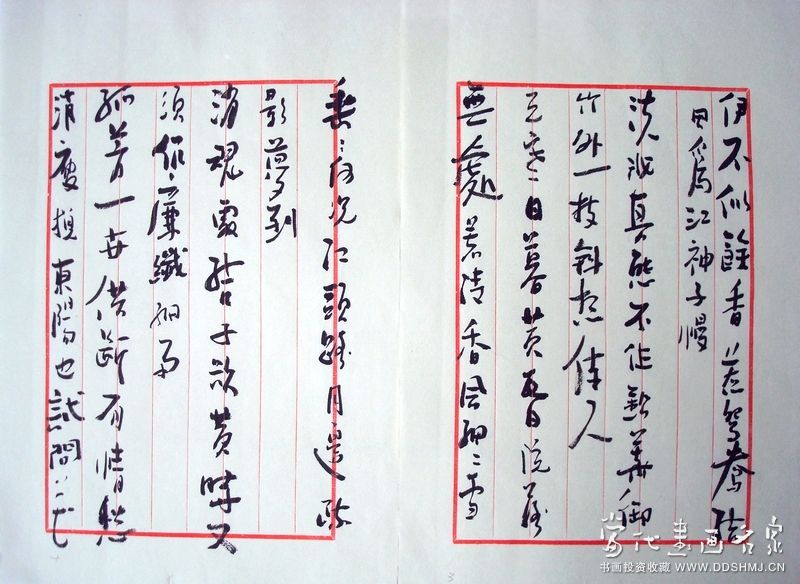 伊不似餘香惹鴛鴦結
田爲江神子慢
洗妝真態不作鉛華御
竹外一枝斜想佳人
天寒日暮黃昏院落
無處著清香風細〻雪
垂〻何況江頭路月邊疏
影夢到
消魂處結子欲黃時又
須作廉纖細雨
孤芳一世供斷有情愁
消瘦損東陽也試問花
3
当代書画名家
书画投资收藏 WWW.DDSHMJ.CN